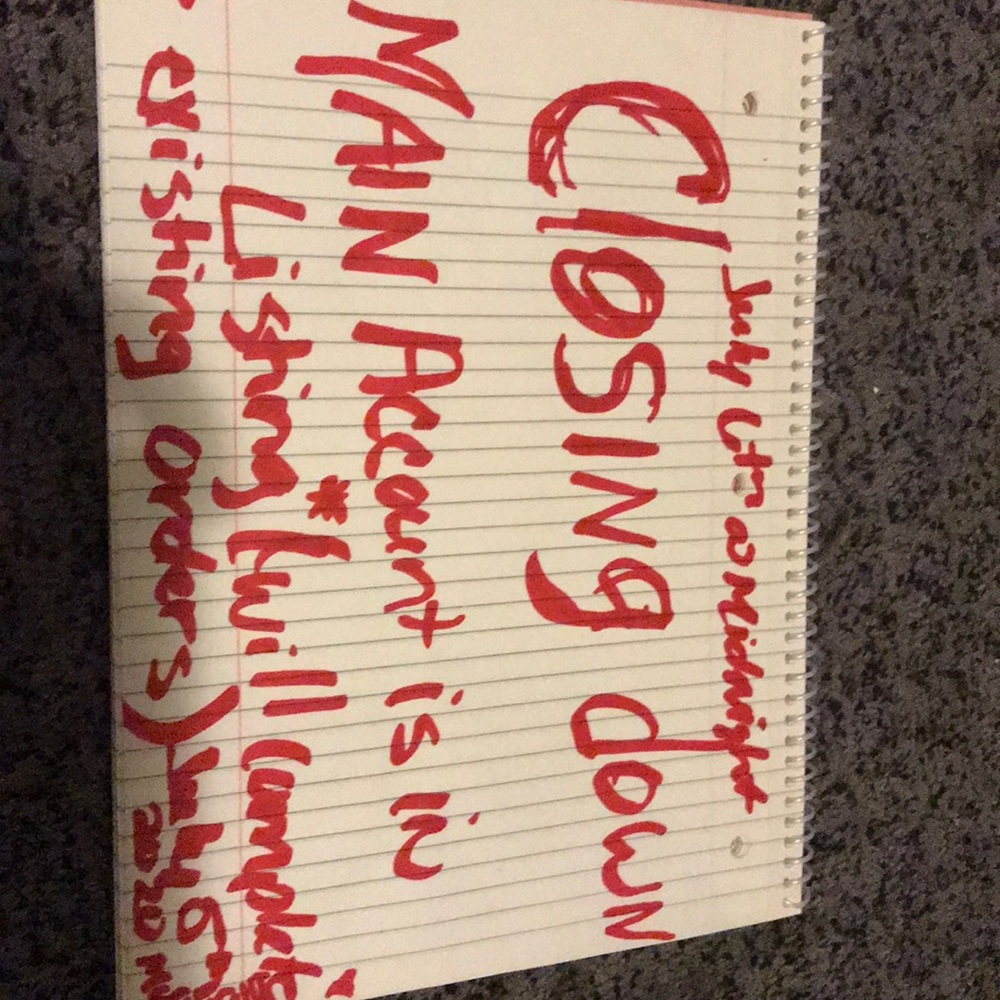 July 6th @ Midnight
ClOSINg dowN
MAIN Account is iN
Listing *(will complete
existing orders) July 6th
2020